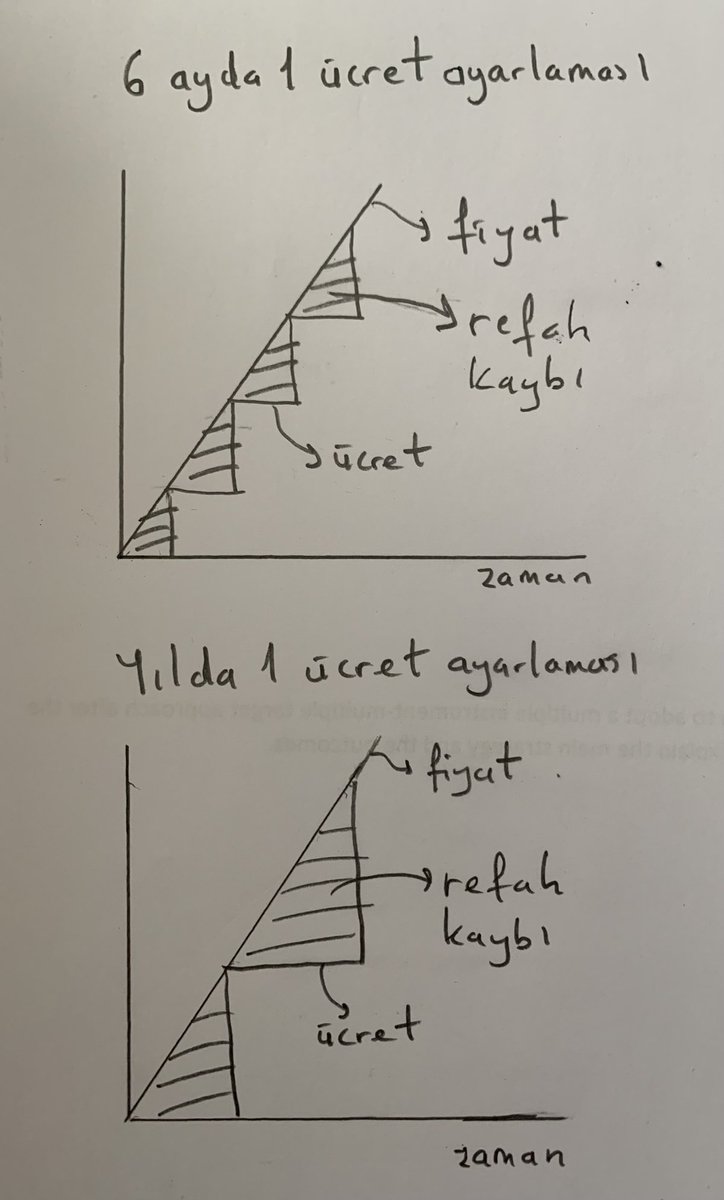 6 ayda 1 ücret ayarlaması
fiyat
refah
kaybı
ücret
zaman
Yılda 1 ücret ayarlaması
fiyat
refah
kaybı
ücret
zaman